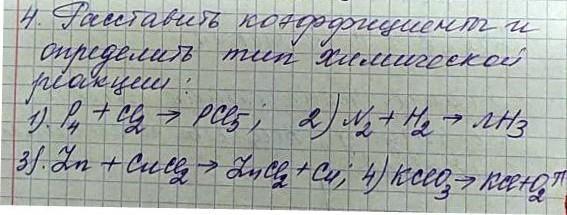 4. Расставить коэффициенты и
определить тип химической
реакции:
1). P₄ + Cl₂ → PCl₅; 2) N₂ + H₂ → NH₃
3). Zn + CuCl₂ → ZnCl₂ + Cu; 4) KClO₃ → KCl+O₂↑